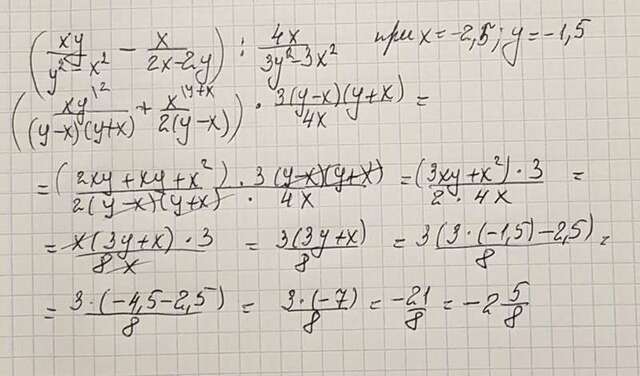 (xy/(y² - x²) - x/(2x-2y)) : 4x/(3y²-3x²) при x = -2,5; y = -1,5
(xy^{\2}/((y-x)(y+x)) + x^{\y+x}/(2(y-x))) · 3(y-x)(y+x)/4x =
= (2xy + xy + x²) · 3(y-x)(y+x)/(2(y-x)(y+x) · 4x) = (3xy + x²) · 3/(2 · 4x) =
= x(3y+x) · 3/8x = 3(3y+x)/8 = 3(3·(-1,5) - 2,5)/8 =
= 3·(-4,5-2,5)/8 = 3·(-7)/8 = -21/8 = -2 5/8